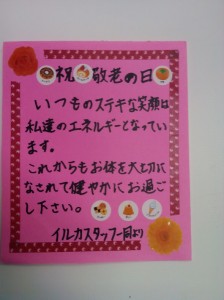 祝 敬老の日
いつものステキな笑顔は
私達のエネルギーとなってい
ます。
これからもお体を大切に
なされて健やかにお過ご
し下さい。
イルカスタッフ一同より